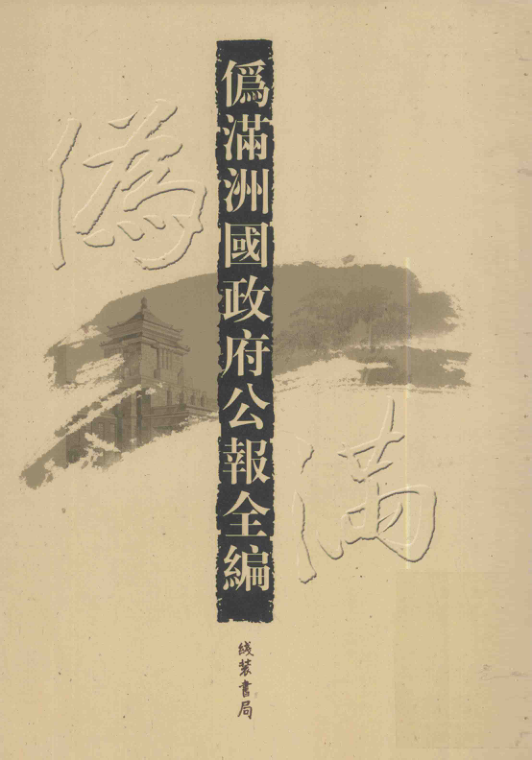 偽
僞滿洲國政府公報全編
滿
綫裝書局